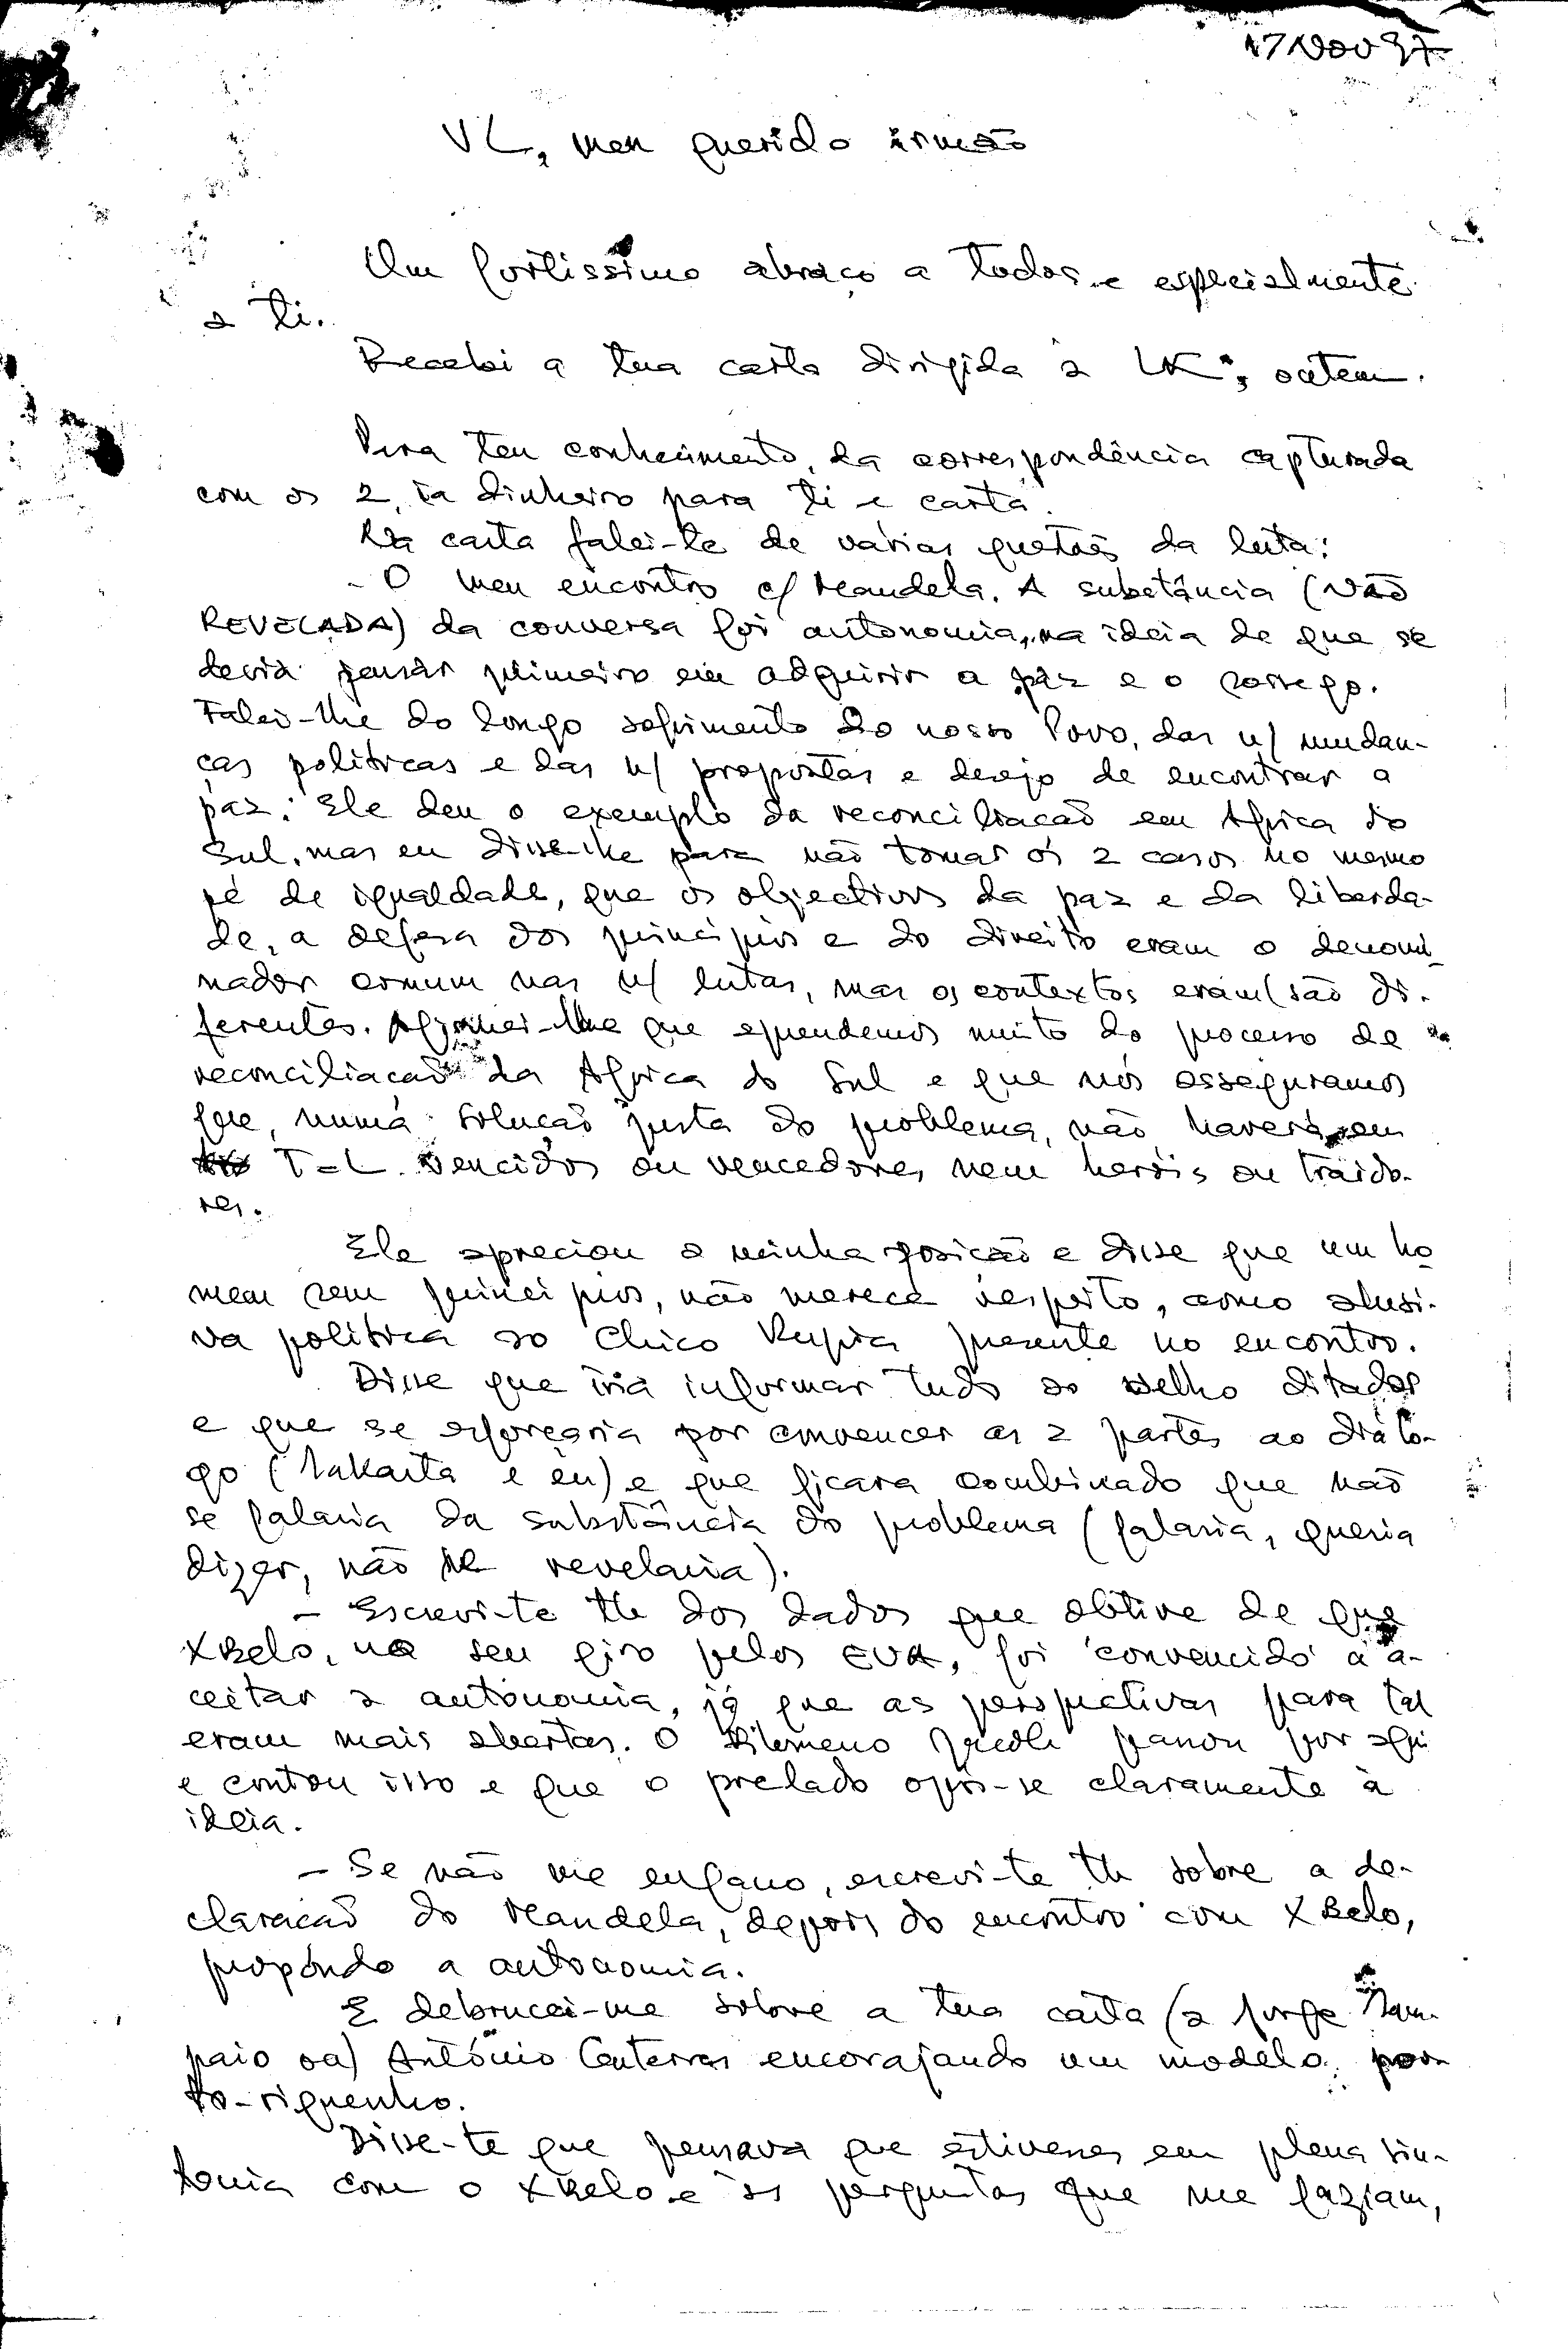 17 Nov 97
VL, meu querido irmão
Um fortissimo abraço a todos e especialmente
a ti.
Recebi a tua carta dirigida a LK, ontem.
Para teu conhecimento, da correspondência capturada
com os 2, ia dinheiro para ti e carta.
Na carta falei-te de várias questões da luta:
- O meu encontro c/ Mandela. A substância (NÃO
REVELADA) da conversa foi autonomia, na ideia de que se
devia pensar primeiro em adquirir a paz e o sossego.
Falei-lhe do longo sofrimento do nosso Povo, das n/ mudan-
ças políticas e das n/ propostas e desejo de encontrar a
paz. Ele deu o exemplo da reconciliacaõ em Africa do
Sul, mas eu disse-lhe para não tomar os 2 casos no mesmo
pé de igualdade, que os objectivos da paz e da liberda-
de, a defesa dos princípios e do direito eram o denomi-
nador comum nas n/ lutas, mas os contextos eram (são di-
ferentes. Afirmei-lhe que aprendemos muito do processo de
reconciliacaõ da Africa do Sul e que nós asseguramos
que, numa solucaõ justa do problema, não haverá em
T-L vencidos ou vencedores, nem heróis ou traido-
res.
Ele apreciou a minha posicão e disse que um ho
mem sem princípios, não merece respeito, como alusi-
va política ao Chico Kupra presente no encontro.
Disse que iria informar tudo ao velho ditador
e que se esforçaria por convencer as 2 partes ao diálo-
go (Jakarta e eu) e que ficara combinado que não
se falaria da substância do problema (falaria, queria
dizer, não se revelaria).
- Escrevi-te tb dos dados que obtive de que
XBelo, no seu giro pelos EUA, foi 'convencido' a a-
ceitar a autonomia, já que as perspectivas para tal
eram mais abertas. O Filomeno Jacob passou por aqui
e contou isso e que o prelado opôs-se claramente à
ideia.
- Se não me engano, escrevi-te tb sobre a de-
claracaõ do Mandela, depois do encontro com XBelo,
propondo a autonomia.
E debrucei-me sobre a tua carta (a Jorge Sam-
paio ou a) António Guterres encorajando um modelo por-
to-riquenho.
Disse-te que pensava que estivesses em plena sin-
tonia com o XBelo e às perguntas que me faziam,